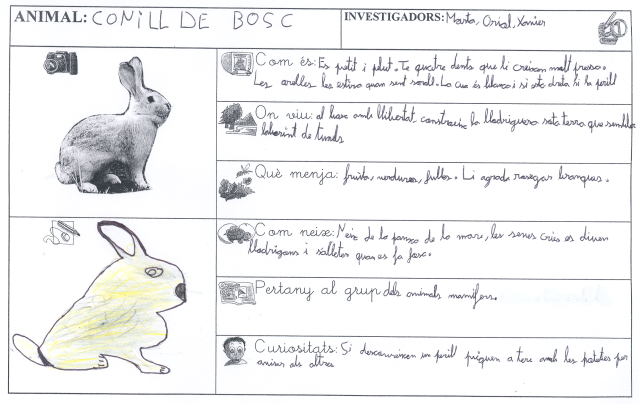 ANIMAL: CONILL DE BOSC
INVESTIGADORS: Marta, Oriol, Xavier
Com és: Es petit i pelut. Te quatre dents que li creixen molt presso.
Les orelles les estira quan sent soroll. La cua és blanca i si està dreta hi ha perill
On viu: al bosc amb llibertat, construeix la lludriguera sota terra que sembla
laberint de túnels
Què menja: fruita, verdures, fulles. Li agrada rosegar branques.
Com neix: Neix de la panxa de la mare, les seves cries es diuen
lludrigons i salten quan es fa fosc.
Pertany al grup dels animals mamífers.
Curiositats: Si descobreixen un perill piquen a terra amb les potetes per
avisar als altres